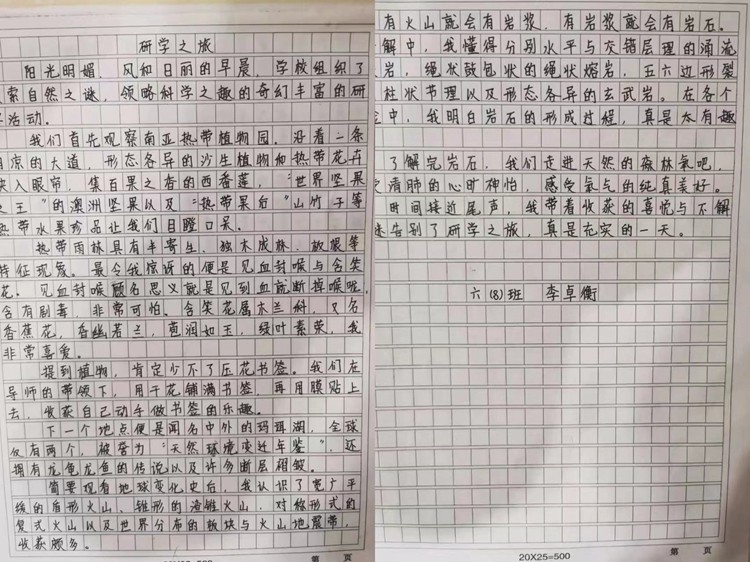 研学之旅
阳光明媚、风和日丽的早晨，学校组织了
索自然之谜，领略科学之趣的奇幻丰富的研
活动。
我们首先观察南亚热带植物园。沿着一条
凉的大道，形态各异的沙生植物和热带花卉
映入眼帘，集百果之香的西番莲，“世界坚果
之王”的澳洲坚果以及“热带果后”山竹子等
热带水果珍品让我们目瞪口呆。
热带雨林具有半寄生，独木成林、板根等
特征现象。最令我惊讶的便是见血封喉与含笑
花。见血封喉顾名思义就是见到血就断掉喉咙，
含有剧毒，非常可怕。含笑花属木兰科，又名
香蕉花，香幽若兰，苞润如玉，绿叶素荣，我
非常喜爱。
提到植物，肯定少不了压花书签。我们在
导师的带领下，用干花铺满书签，再用膜贴上
去，收获自己动手做书签的乐趣。
下一个地点便是闻名中外的玛珥湖，全球
仅有两个，被誉为“天然环境变迁年鉴”，还
拥有龙龟龙鱼的传说以及许多断层褶皱。
简要观看地球变化史后，我认识了宽广平
缓的盾形火山，锥形的渣锥火山，对称形式的
复式火山以及世界分布的板块与火山地震带，
收获颇多。
20X25=500
第 页
有火山就会有岩浆，有岩浆就会有岩石。
解中，我懂得分别水平与交错层理的涌流
岩，绳状鼓包状的绳状熔岩，五六边形裂
柱状节理以及形态各异的玄武岩。在各个
中，我明白岩石的形成过程，真是太有趣
了解完岩石，我们走进天然的森林氧吧，
清肺的心旷神怡，感受氧气的纯真美好。
时间接近尾声，我带着收获的喜悦与不解
告别了研学之旅，真是充实的一天。
六(8)班 李卓衡
20X25=500
第 页